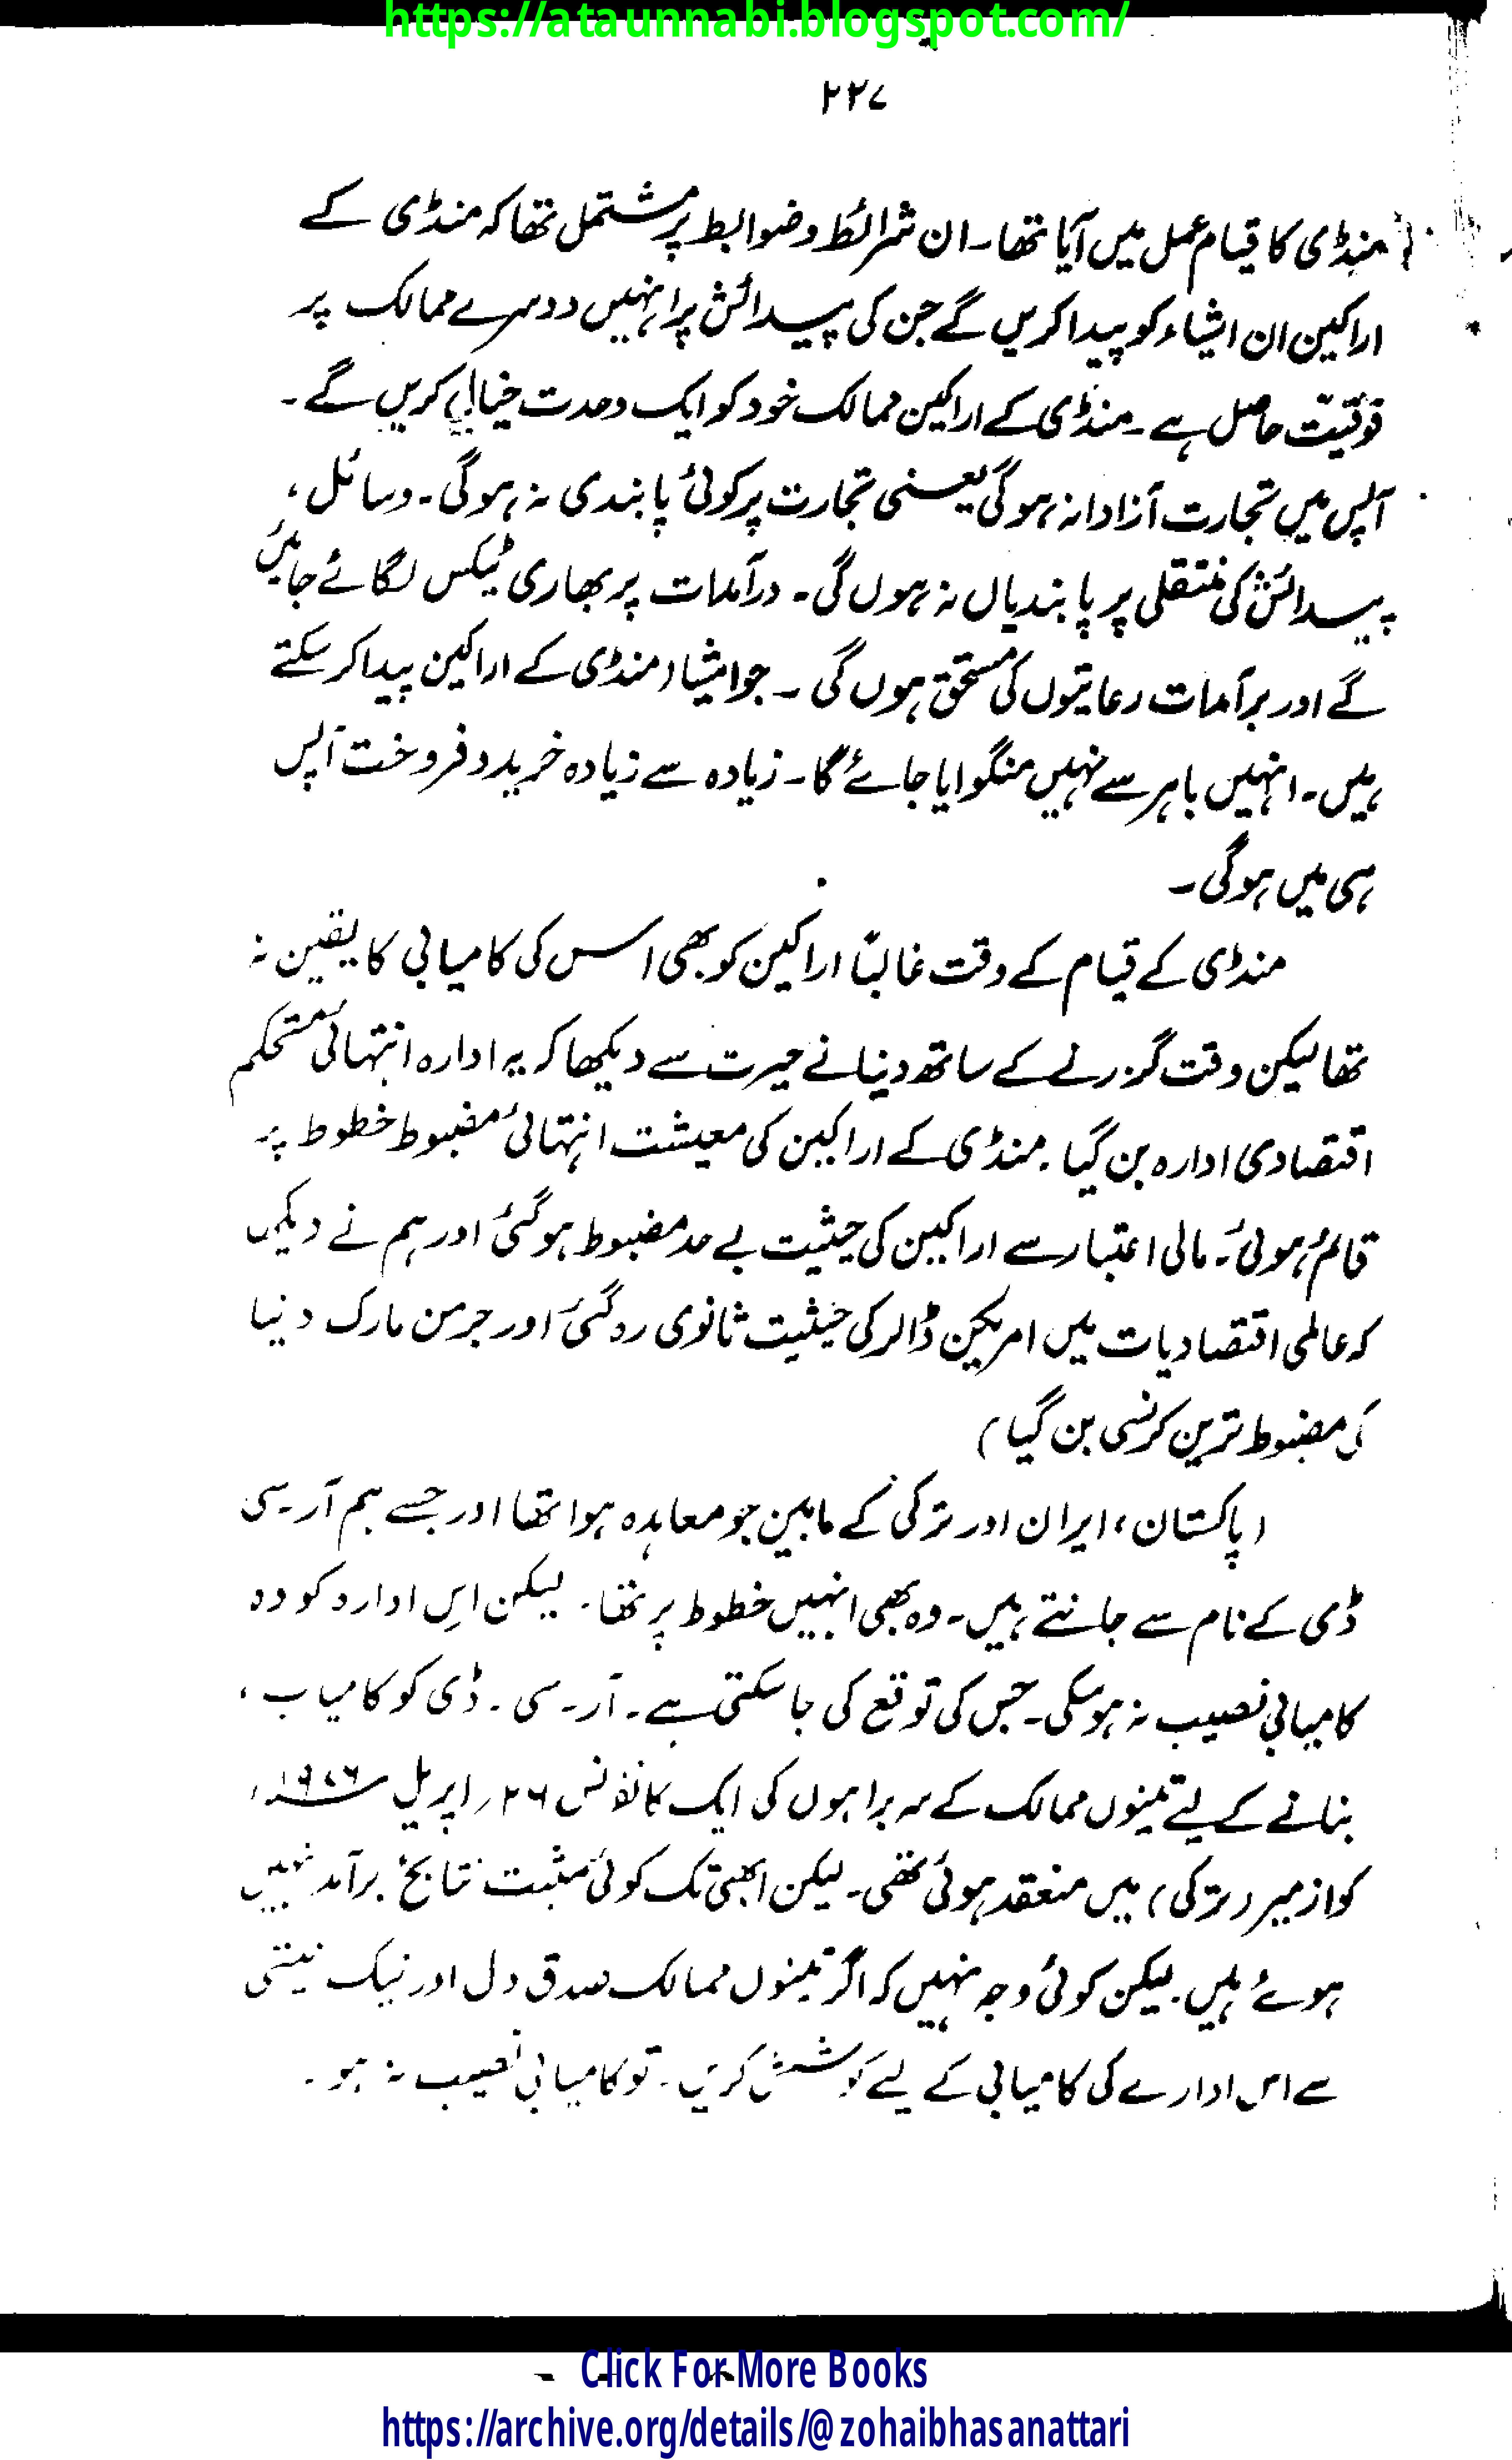 https://ataunnabi.blogspot.com/
۲۲۷
منڈی کا قیام عمل میں آیا تھا۔ ان شرائط و ضوابط پر مشتمل تھا کہ منڈی کے
اراکین ان اشیاء کو پیدا کریں گے جن کی پیدائش پر انہیں دوسرے ممالک پر
فوقیت حاصل ہے۔ منڈی کے اراکین ممالک خود کو ایک وحدت خیال کریں گے۔
آپس میں تجارت آزادانہ ہوگی یعنی تجارت پر کوئی پابندی نہ ہوگی۔ وسائل،
پیدائش کی منتقلی پر پابندیاں نہ ہوں گی۔ درآمدات پر بھاری ٹیکس لگائے جائیں
گے اور برآمدات رعایتوں کی مستحق ہوں گی ۔ جو اشیاء منڈی کے اراکین پیدا کر سکتے
ہیں۔ انہیں باہر سے نہیں منگوایا جائے گا۔ زیادہ سے زیادہ خرید و فروخت آپس
ہی میں ہوگی ۔
منڈی کے قیام کے وقت غالباً اراکین کو بھی اس کی کامیابی کا یقین نہ
تھا لیکن وقت گزرنے کے ساتھ دنیا نے حیرت سے دیکھا کہ یہ ادارہ انتہائی مستحکم
اقتصادی ادارہ بن گیا۔ منڈی کے اراکین کی معیشت انتہائی مضبوط خطوط پر
قائم ہوئی۔ مالی اعتبار سے اراکین کی حیثیت بے حد مضبوط ہو گئی اور ہم نے دیکھا
کہ عالمی اقتصادیات میں امریکن ڈالر کی حیثیت ثانوی رہ گئی اور جرمن مارک دنیا
کی مضبوط ترین کرنسی بن گیا )
( پاکستان، ایران اور ترکی کے مابین جو معاہدہ ہوا تھا اور جسے ہم آر۔سی
ڈی کے نام سے جانتے ہیں۔ وہ بھی انہیں خطوط پر تھا۔ لیکن اس ادارہ کو وہ
کامیابی نصیب نہ ہو سکی۔ جس کی توقع کی جا سکتی ہے۔ آر۔ سی ۔ ڈی کو کامیاب ،
بنانے کے لیے تینوں ممالک کے سربراہوں کی ایک کانفرنس ۲۶؍ اپریل ۱۹۷۶ء
کو ازمیر (ترکی) میں منعقد ہوئی تھی۔ لیکن ابھی تک کوئی مثبت نتائج برآمد نہیں
ہوئے ہیں۔ لیکن کوئی وجہ نہیں کہ اگر تینوں ممالک صدق دل اور نیک نیتی
سے اس ادارے کی کامیابی کے لیے کوشش کریں۔ تو کامیابی نصیب نہ ہو ۔
Click For More Books
https://archive.org/details/@zohaibhasanattari